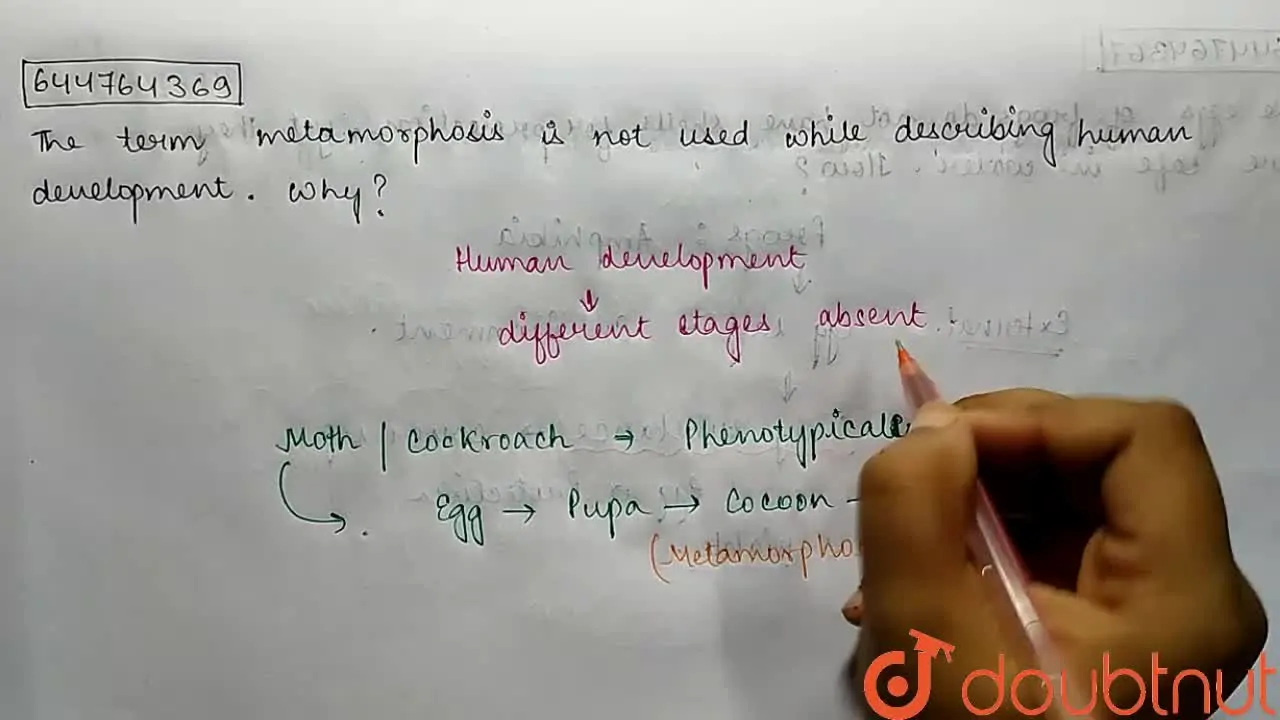 644764369
The term metamorphosis is not used while describing human
development. Why?
Human development
↓
different stages absent
Moth / Cockroach → Phenotypical
Egg → Pupa → Cocoon →
(Metamorpho
doubtnut